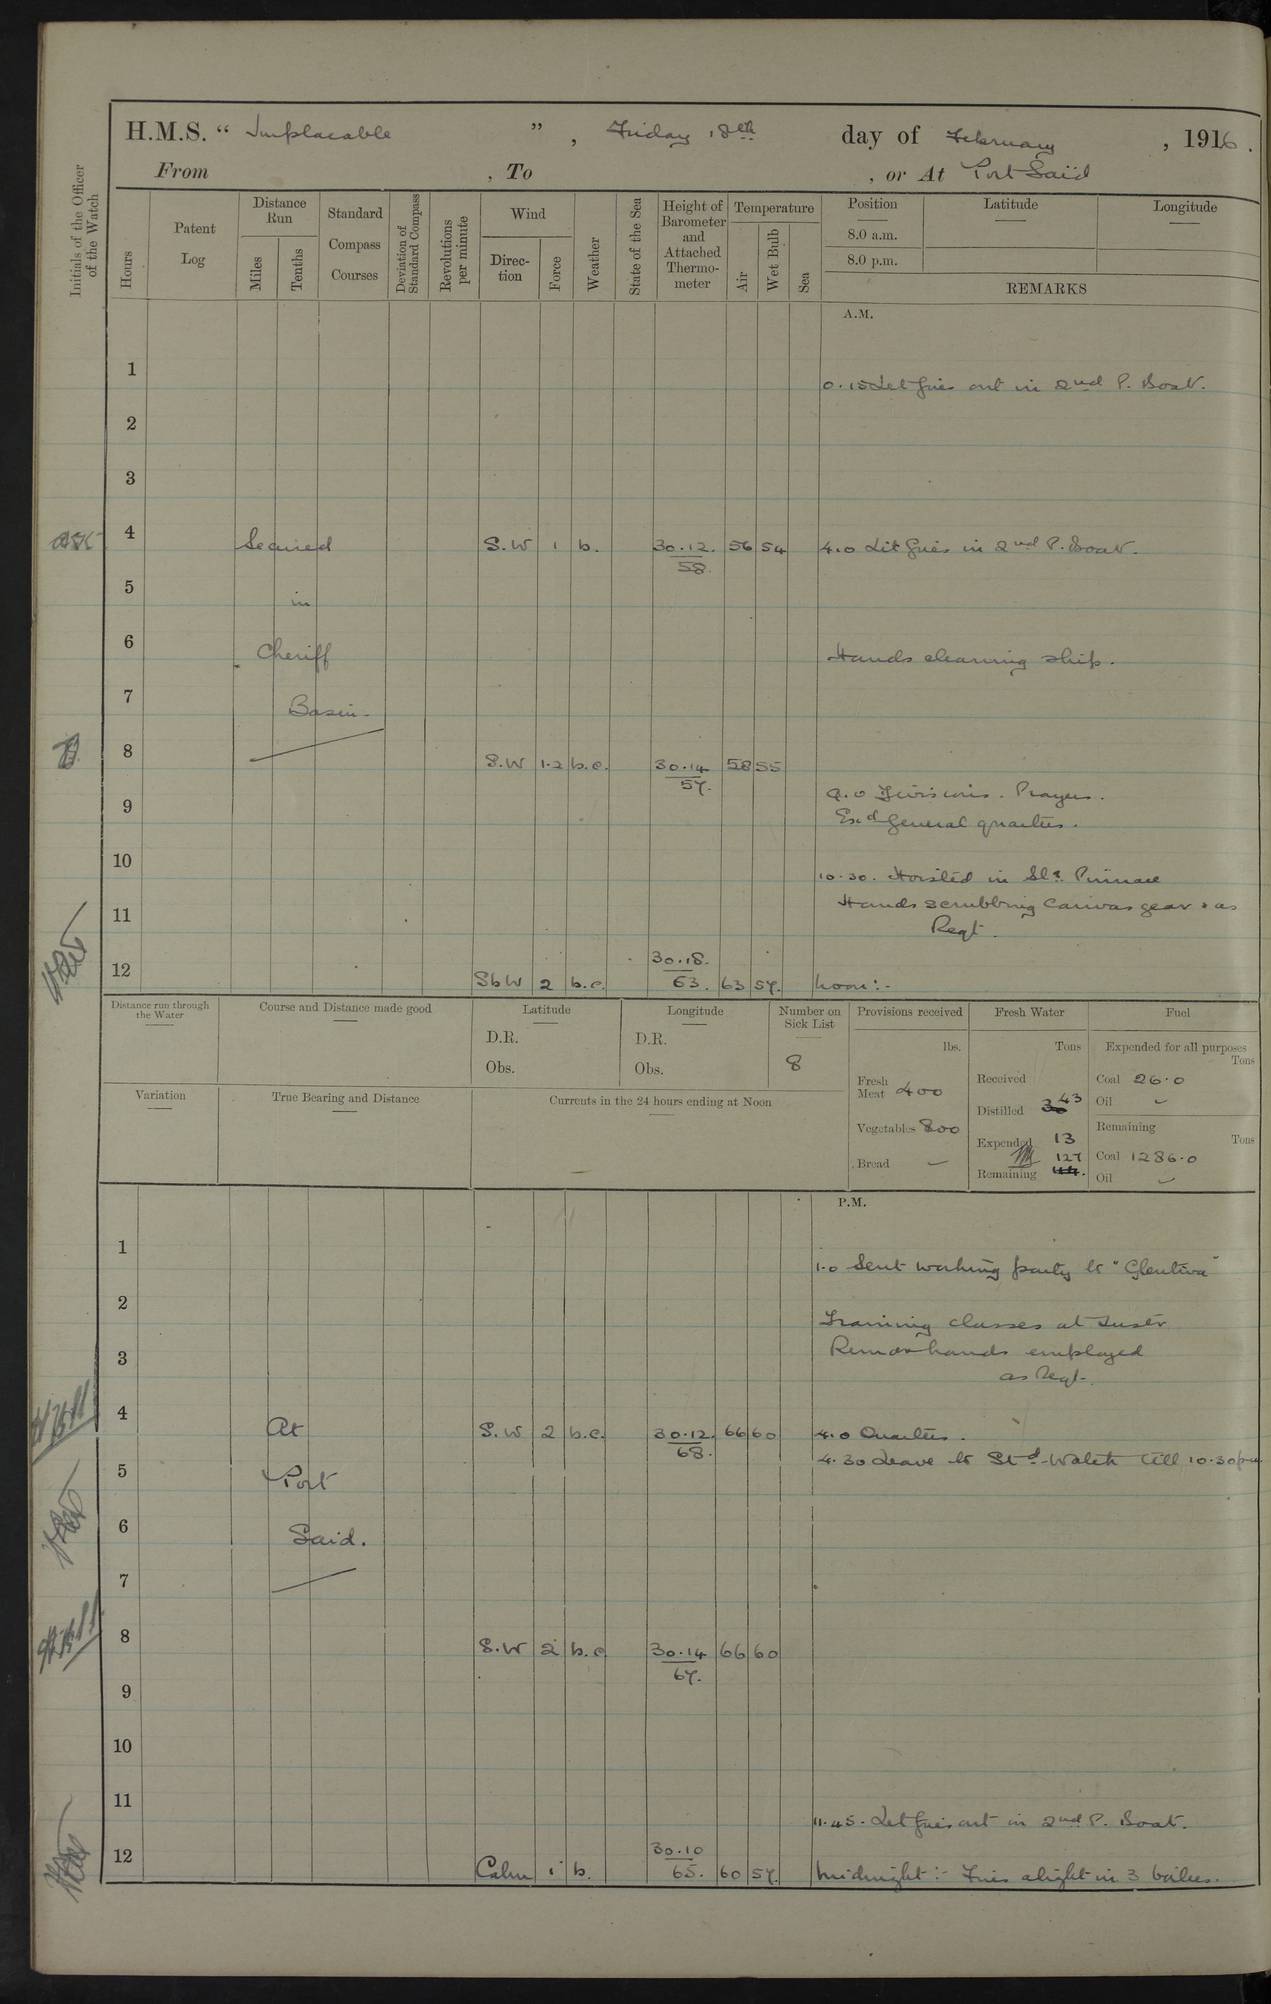 H.M.S. “ Implacable ” , Friday 18th day of February , 1916 .
From , To , or At Port Said
Initials of the Officer of the Watch
Hours
Patent Log
Distance Run
Miles
Tenths
Standard Compass Courses
Deviation of Standard Compass
Revolutions per minute
Wind
Direc-tion
Force
Weather
State of the Sea
Height of Barometer and Attached Thermo-meter
Temperature
Air
Wet Bulb
Sea
Position
8.0 a.m.
8.0 p.m.
Latitude
Longitude
REMARKS
A.M.
1
0.15 Let fires out in 2nd P. Boat.
2
3
4 Secured S.W 1 b. 30.12. 56 54 4.0 Lit fires in 2nd P. Boat.
58.
5 in
6 Cheriff Hands cleaning ship.
7 Basin
8 S.W 1.2 b.c. 30.14 58 55
57.
9.0 Divisions. Prayers.
9 Exd General quarters.
10 10.30. Hoisted in Stm Pinnace
11 Hands scrubbing canvas gear & as
Reqt.
30.18.
12 SbW 2 b.c. 63. 63 57. Noon:-
Distance run through the Water
Course and Distance made good
Latitude
D.R.
Obs.
Longitude
D.R.
Obs.
Number on Sick List
8
Provisions received
lbs.
Fresh Meat 400
Vegetables 800
Bread –
Fresh Water
Tons
Received
Distilled 30 43
Expended 13
127
Remaining 44.
Fuel
Expended for all purposes
Tons
Coal 26.0
Oil –
Remaining
Tons
Coal 1286.0
Oil –
Variation
True Bearing and Distance
Currents in the 24 hours ending at Noon
P.M.
1
1.0 Sent working party to "Glentiva"
2
Training classes at Instr
3 Remdr hands employed
as Reqt.
4 At S.W 2 b.c. 30.12. 66 60 4.0 Quarters.
68.
4.30 Leave to Stbd Watch till 10.30pm
5 Port
6 Said.
7
8 S.W 2 b.c 30.14 66 60
67.
9
10
11
11.45. Let fires out in 2nd P. Boat.
30.10
12 Calm 1 b. 65. 60 57. Midnight:- Fires alight in 3 boilers.